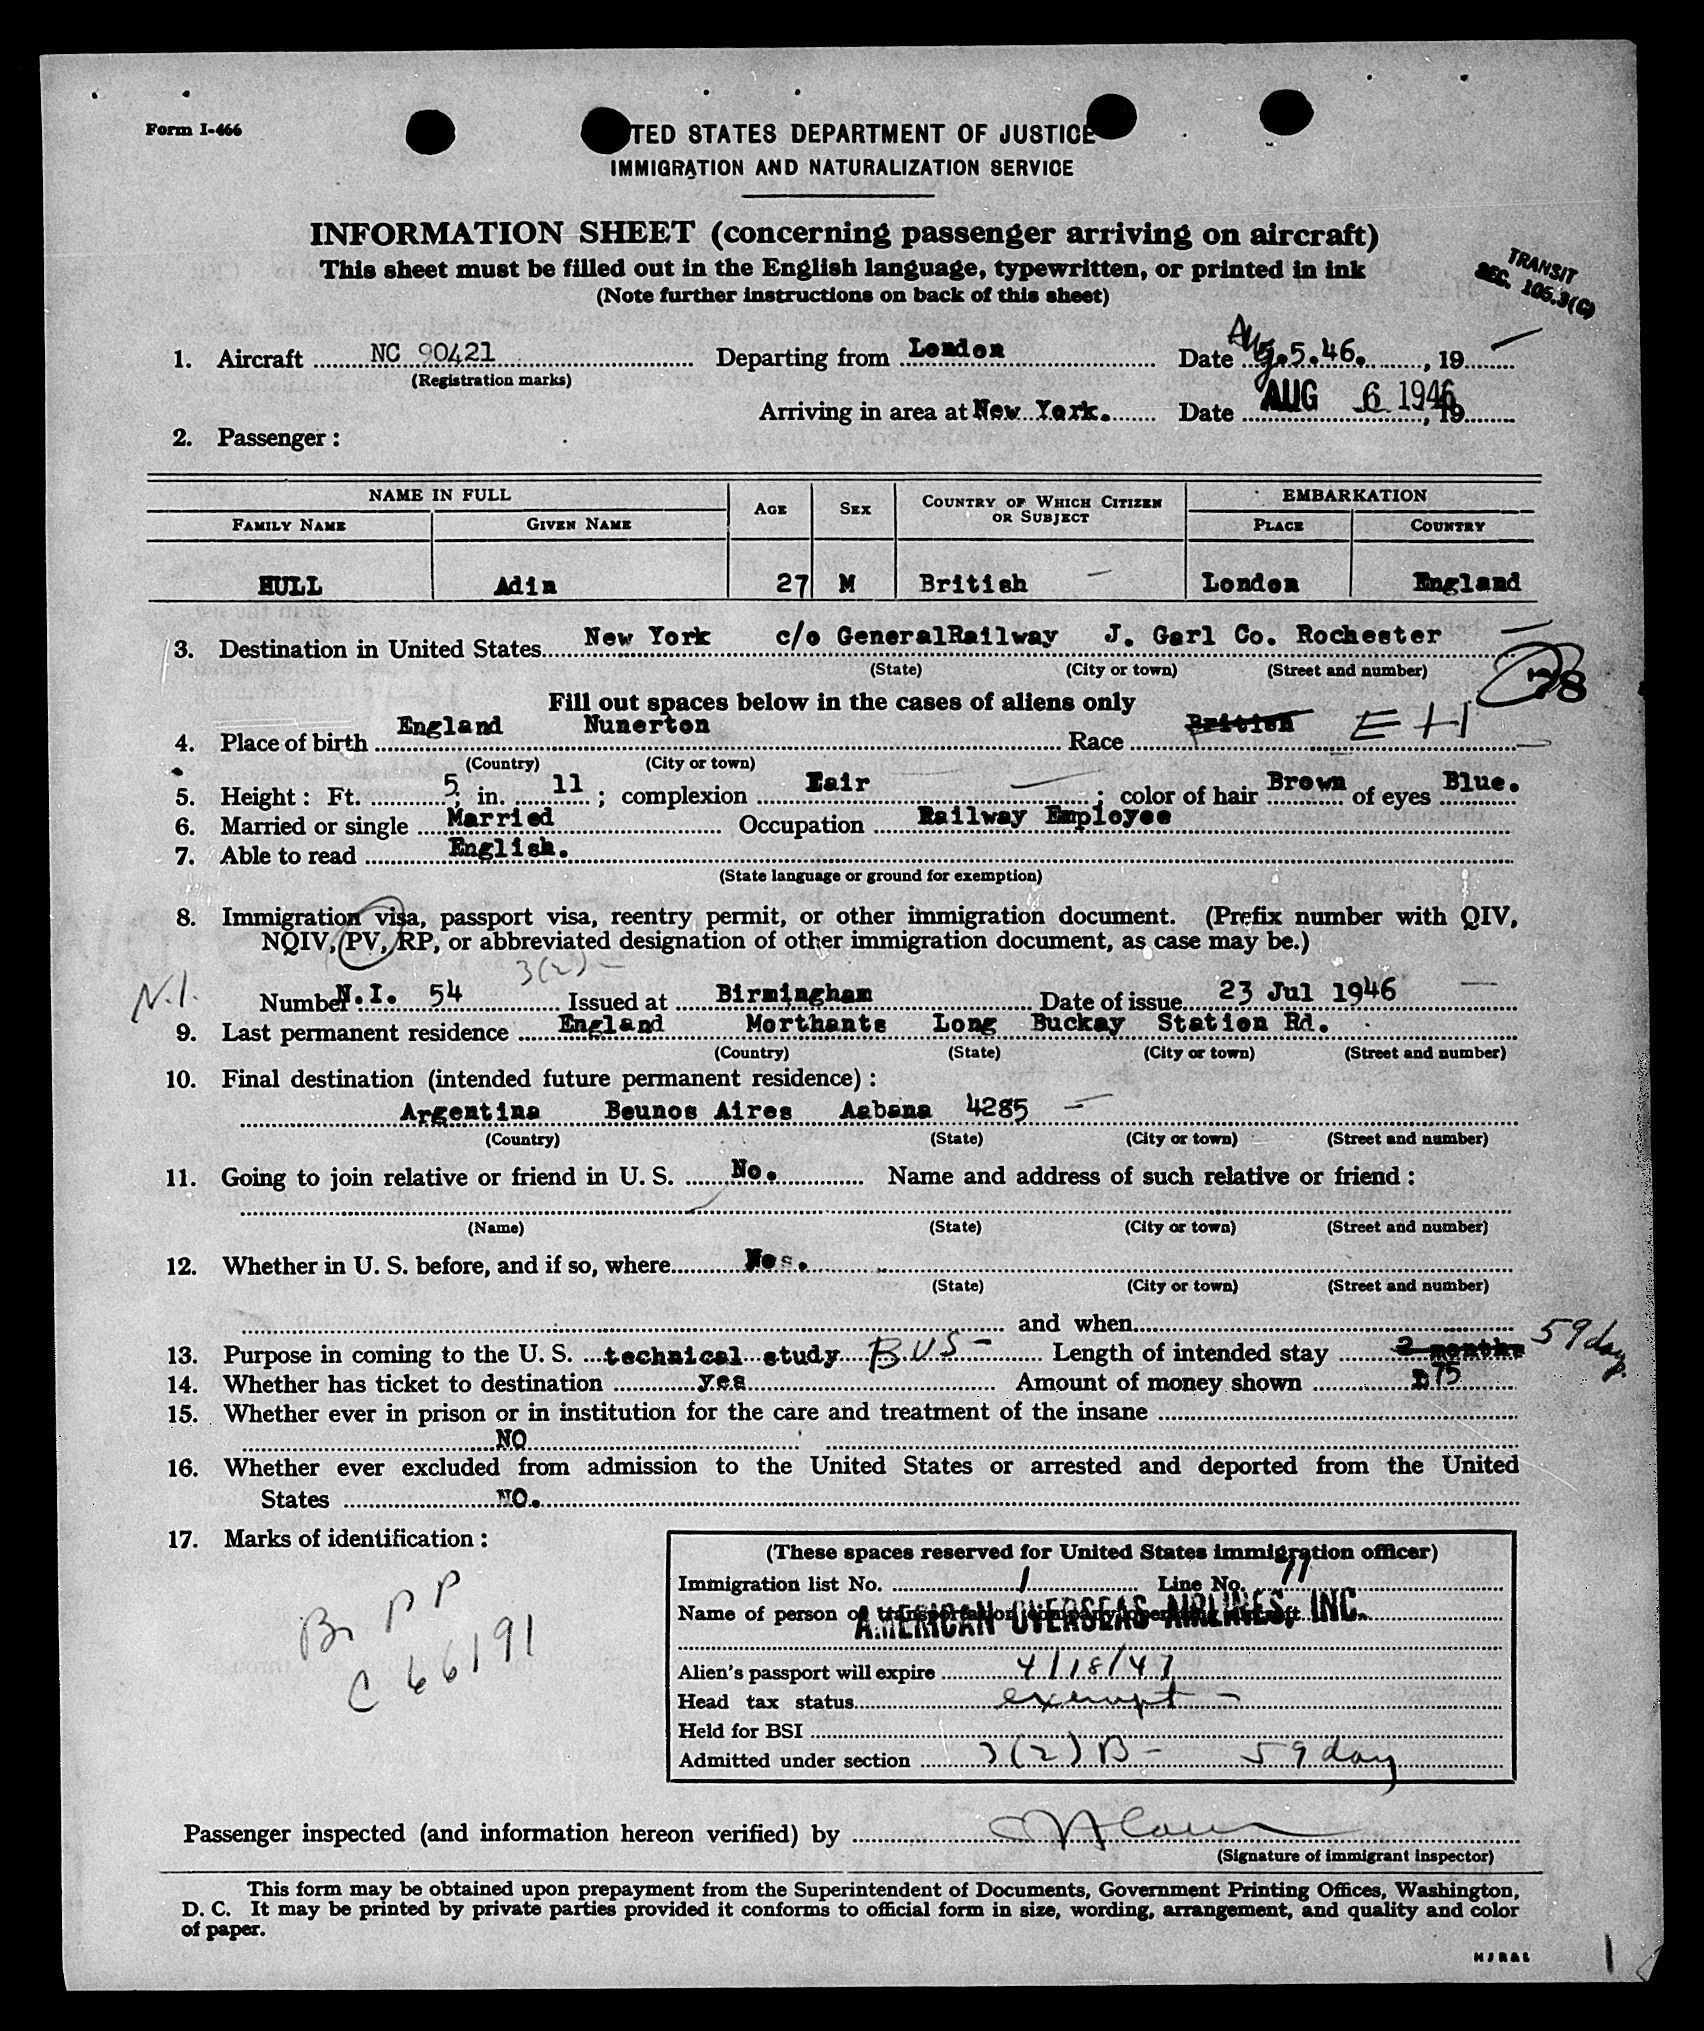 Form I-466
TED STATES DEPARTMENT OF JUSTICE
IMMIGRATION AND NATURALIZATION SERVICE
INFORMATION SHEET (concerning passenger arriving on aircraft)
This sheet must be filled out in the English language, typewritten, or printed in ink
(Note further instructions on back of this sheet)
TRANSIT
SEC. 105.3(C)
1. Aircraft NC 90421 Departing from London Date Aug. 5.46. , 19
(Registration marks)
Arriving in area at New York. Date AUG 6 1946 , 19
2. Passenger :
NAME IN FULL AGE SEX COUNTRY OF WHICH CITIZEN OR SUBJECT EMBARKATION
FAMILY NAME GIVEN NAME PLACE COUNTRY
HULL Adin 27 M British – London England
3. Destination in United States New York c/o GeneralRailway J. Garl Co. Rochester
(State) (City or town) (Street and number)
28
Fill out spaces below in the cases of aliens only
4. Place of birth England Nunerton Race British E H
(Country) (City or town)
5. Height : Ft. 5 ; in. 11 ; complexion Fair ; color of hair Brown of eyes Blue.
6. Married or single Married Occupation Railway Employee
7. Able to read English.
(State language or ground for exemption)
8. Immigration visa, passport visa, reentry permit, or other immigration document. (Prefix number with QIV,
NQIV, PV, RP, or abbreviated designation of other immigration document, as case may be.)
3(2)–
N.I. Number N.I. 54 Issued at Birmingham Date of issue 23 Jul 1946
9. Last permanent residence England Morthants Long Buckay Station Rd.
(Country) (State) (City or town) (Street and number)
10. Final destination (intended future permanent residence) :
Argentina Beunos Aires Aabana 4285
(Country) (State) (City or town) (Street and number)
11. Going to join relative or friend in U. S. No. Name and address of such relative or friend :
(Name) (State) (City or town) (Street and number)
12. Whether in U. S. before, and if so, where
(State) (City or town) (Street and number)
and when
13. Purpose in coming to the U. S. technical study BUS – Length of intended stay 2 months 59 day
14. Whether has ticket to destination yes Amount of money shown 75
15. Whether ever in prison or in institution for the care and treatment of the insane
NO
16. Whether ever excluded from admission to the United States or arrested and deported from the United
States NO.
17. Marks of identification :
Br PP
C 66191
(These spaces reserved for United States immigration officer)
Immigration list No. 1 Line No. 11
Name of person or transportation company operating aircraft
AMERICAN OVERSEAS AIRLINES, INC.
Alien's passport will expire 4/18/47
Head tax status exempt –
Held for BSI
Admitted under section 3(2)B – 59 day
Passenger inspected (and information hereon verified) by
(Signature of immigrant inspector)
This form may be obtained upon prepayment from the Superintendent of Documents, Government Printing Offices, Washington,
D. C. It may be printed by private parties provided it conforms to official form in size, wording, arrangement, and quality and color
of paper.
1